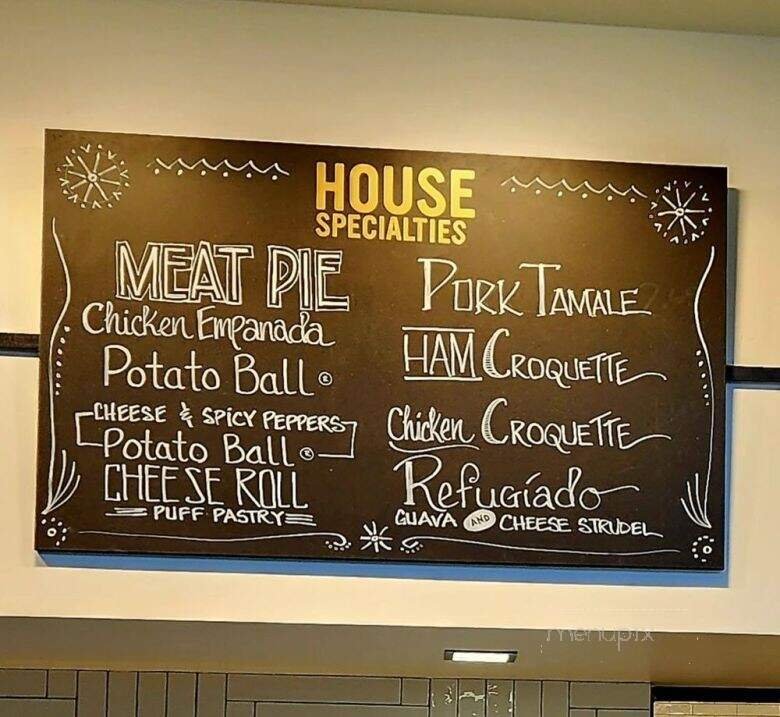 HOUSE
SPECIALTIES
MEAT PIE
Chicken Empanada
Potato Ball ®
CHEESE & SPICY PEPPERS
Potato Ball ®
CHEESE ROLL
PUFF PASTRY
PORK TAMALE
HAM CROQUETTE
Chicken CROQUETTE
Refugiado
GUAVA AND CHEESE STRUDEL
menupix